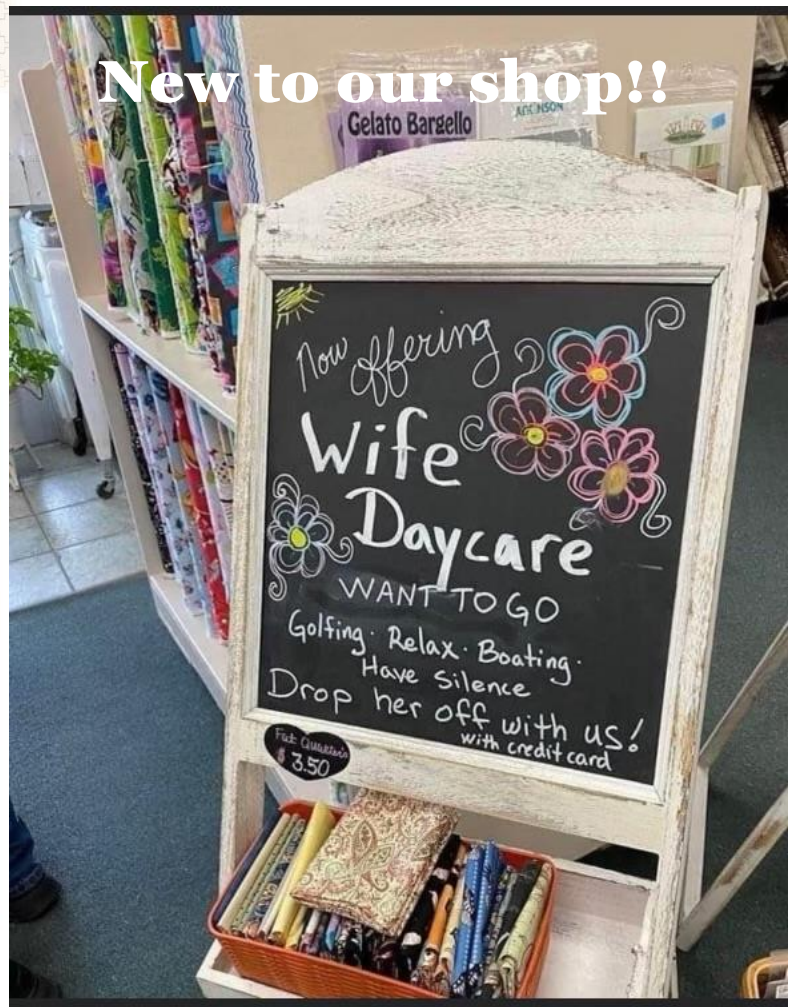 New to our shop!!
Gelato Bargello
Now offering
Wife
Daycare
WANT TO GO
Golfing · Relax · Boating ·
Have Silence
Drop her off with us!
with credit card
Fat Quarter's
$ 3.50